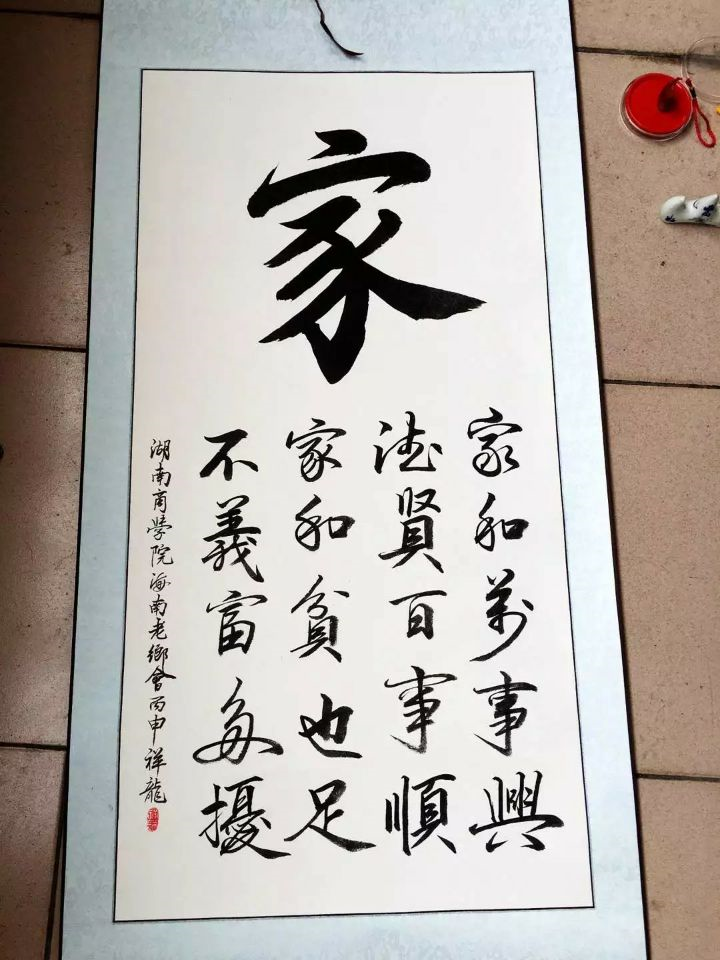 家
家和萬事興
德賢百事順
家和貧也足
不義富多擾
湖南商學院海南老鄉會丙申祥龍